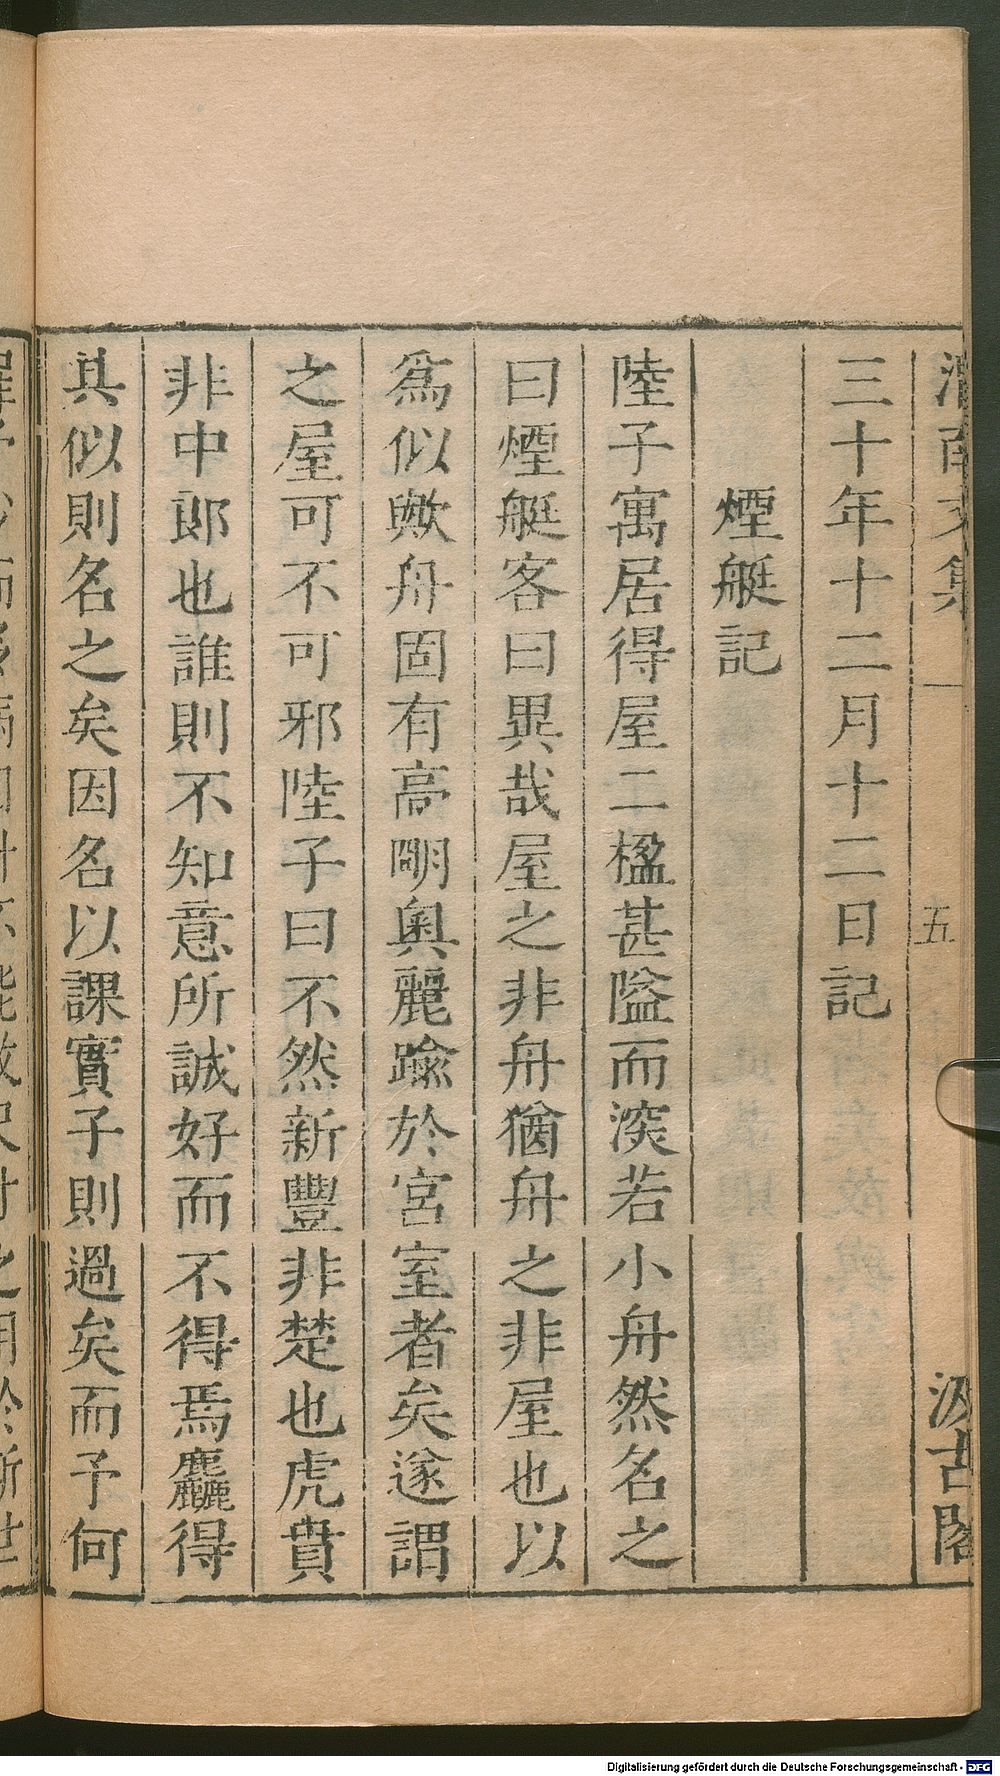 渭南文集 五 汲古閣
三十年十二月十二日記
煙艇記
陸子寓居得屋二楹甚隘而深若小舟然名之
曰煙艇客曰異哉屋之非舟猶舟之非屋也以
爲似歟舟固有高明奧麗踰於宮室者矣遂謂
之屋可不可邪陸子曰不然新豐非楚也虎賁
非中郎也誰則不知意所誠好而不得焉麤得
其似則名之矣因名以課實子則過矣而予何
Digitalisierung gefördert durch die Deutsche Forschungsgemeinschaft - DFG